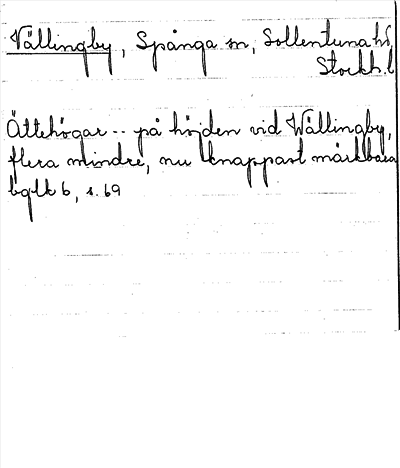 Vällingby, Spånga sn, Sollentuna hd,
Stockh. l
Ättehögar -- på höjden vid Wällingby,
flera mindre, nu knappast märkbara
bglk 6, s. 69